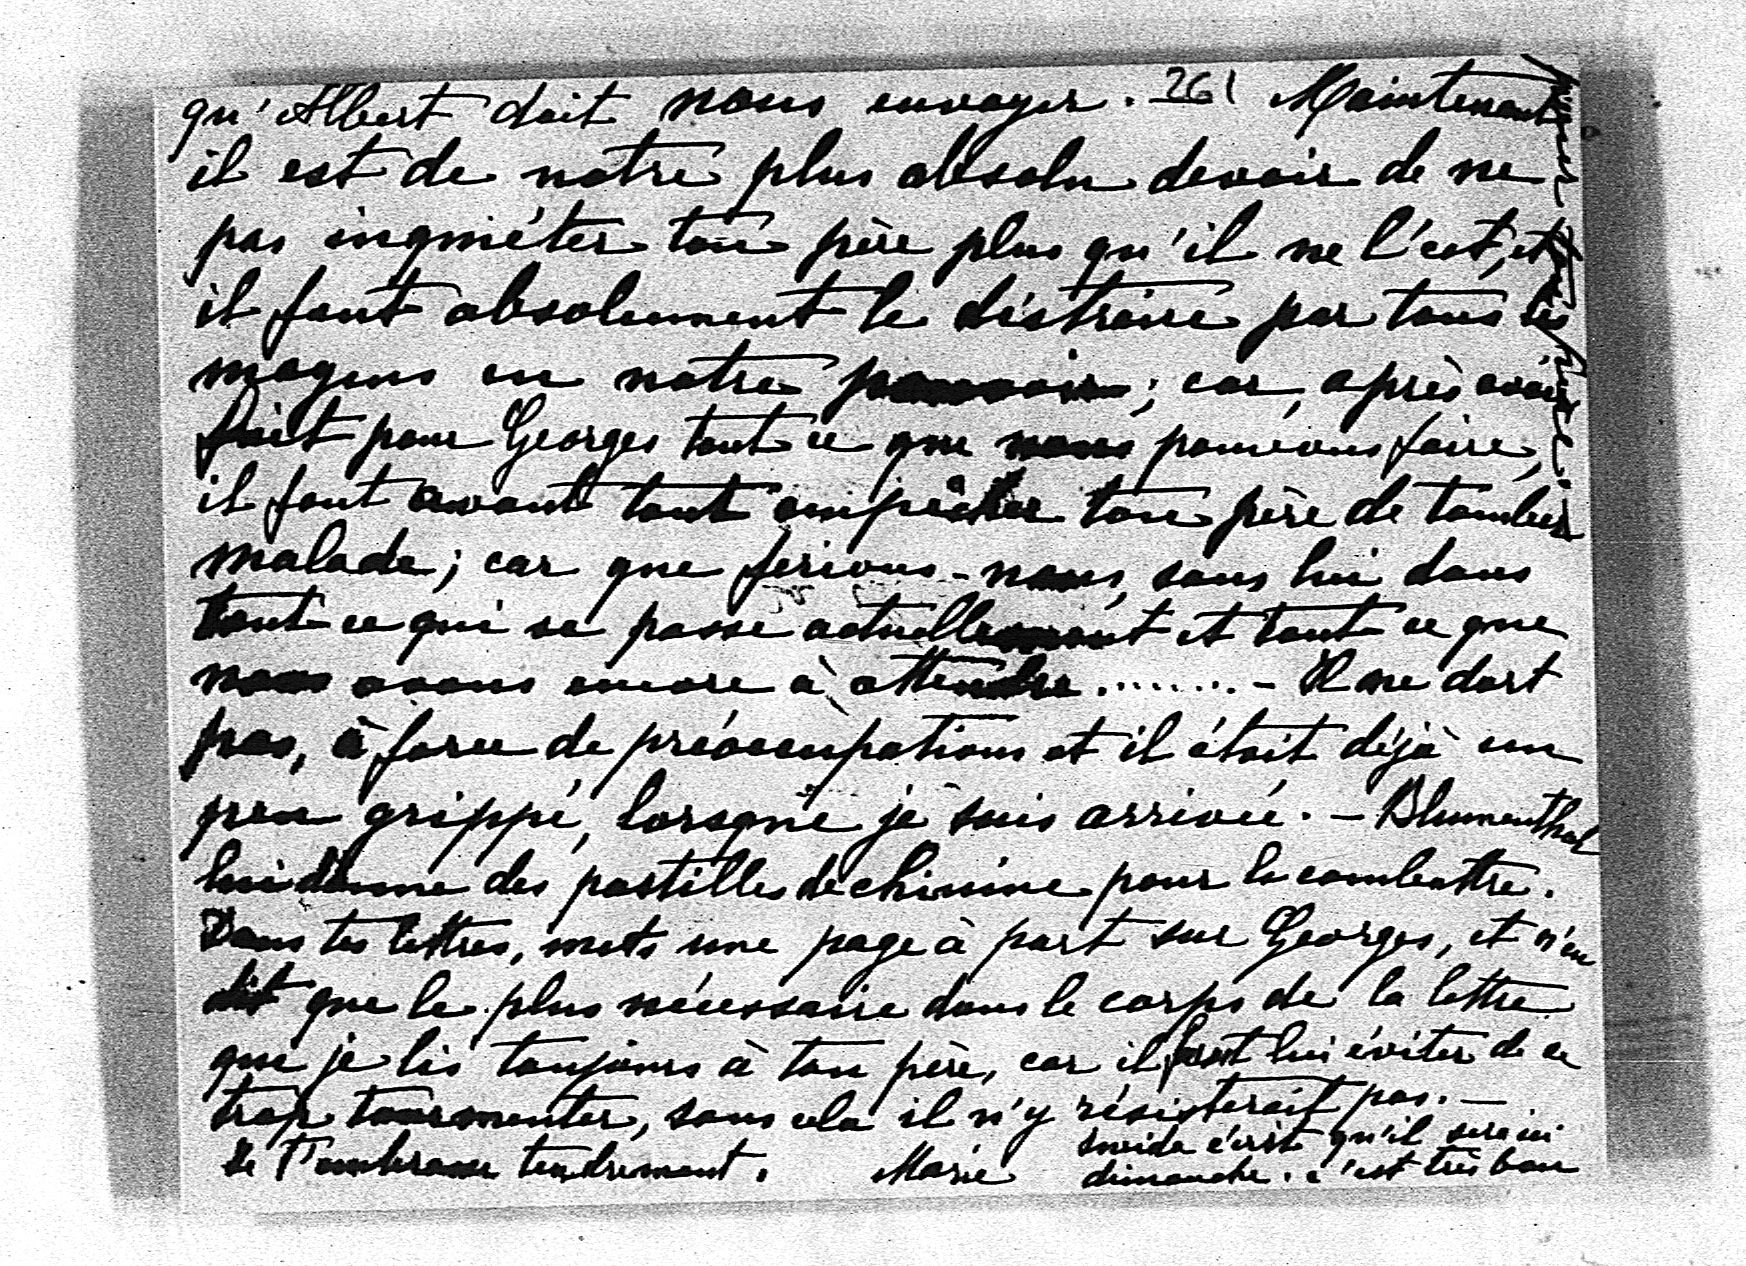 qu'Albert doit nous envoyer. 261 Maintenant
il est de notre plus absolu devoir de ne
pas inquiéter ton père plus qu'il ne l'est, et
il faut absolument le distraire par tous les
moyens en notre pouvoir; car, après avoir
fait pour Georges tout ce que nous pouvons faire,
il faut avant tout empêcher ton père de tomber
malade; car que ferions-nous, sans lui dans
tout ce qui se passe actuellement et tout ce que
nous avons encore à attendre ........ - Il ne dort
pas, à force de préoccupations et il était déjà un
peu grippé, lorsque je suis arrivée. - Blumenthal
lui donne des pastilles de chinine pour le combattre.
Dans tes lettres, mets une page à part sur Georges, et n'en
dit que le plus nécessaire dans le corps de la lettre
que je lis toujours à ton père, car il faut lui éviter de se
trop tourmenter, sans cela il n'y résisterait pas. -
Je t'embrasse tendrement. Marie
écrit qu'il sera ici
dimanche. c'est très bon
pour ton père.